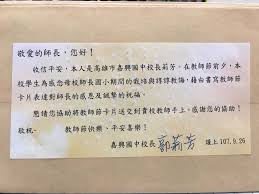 敬愛的師長,您好!
收信平安,本人是高雄市嘉興國中校長莉芳。在教師節前夕,本
校學生為感念母校師長國小期間的栽培與諄諄教誨,藉由書寫教師節
卡片表達對師長的感恩及誠摯的祝福。
懇請您協助將教師節卡片送交到貴校教師手上,感謝您的協助!
敬祝- 教師節快樂,平安喜樂!
嘉興國中校長 郭莉芳 謹上 107.9.26